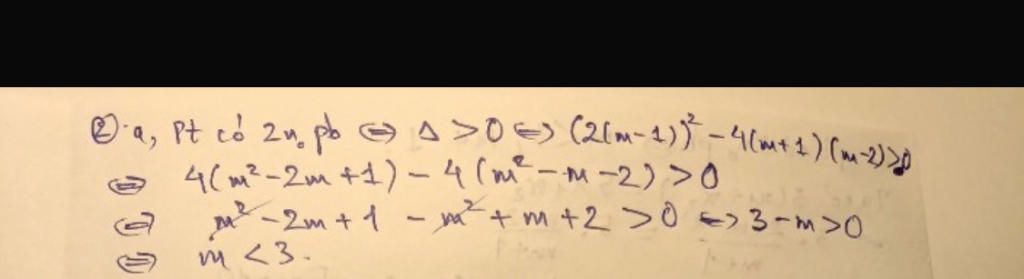 ② a, Pt có 2n₀ pb ⇔ Δ > 0 ⇔ (2(m-1))² - 4(m+1)(m-2)>0
⇔ 4(m²-2m+1) - 4(m²-m-2) > 0
⇔ m²-2m+1 - m²+m+2 > 0 ⇔ 3-m>0
⇔ m <3.